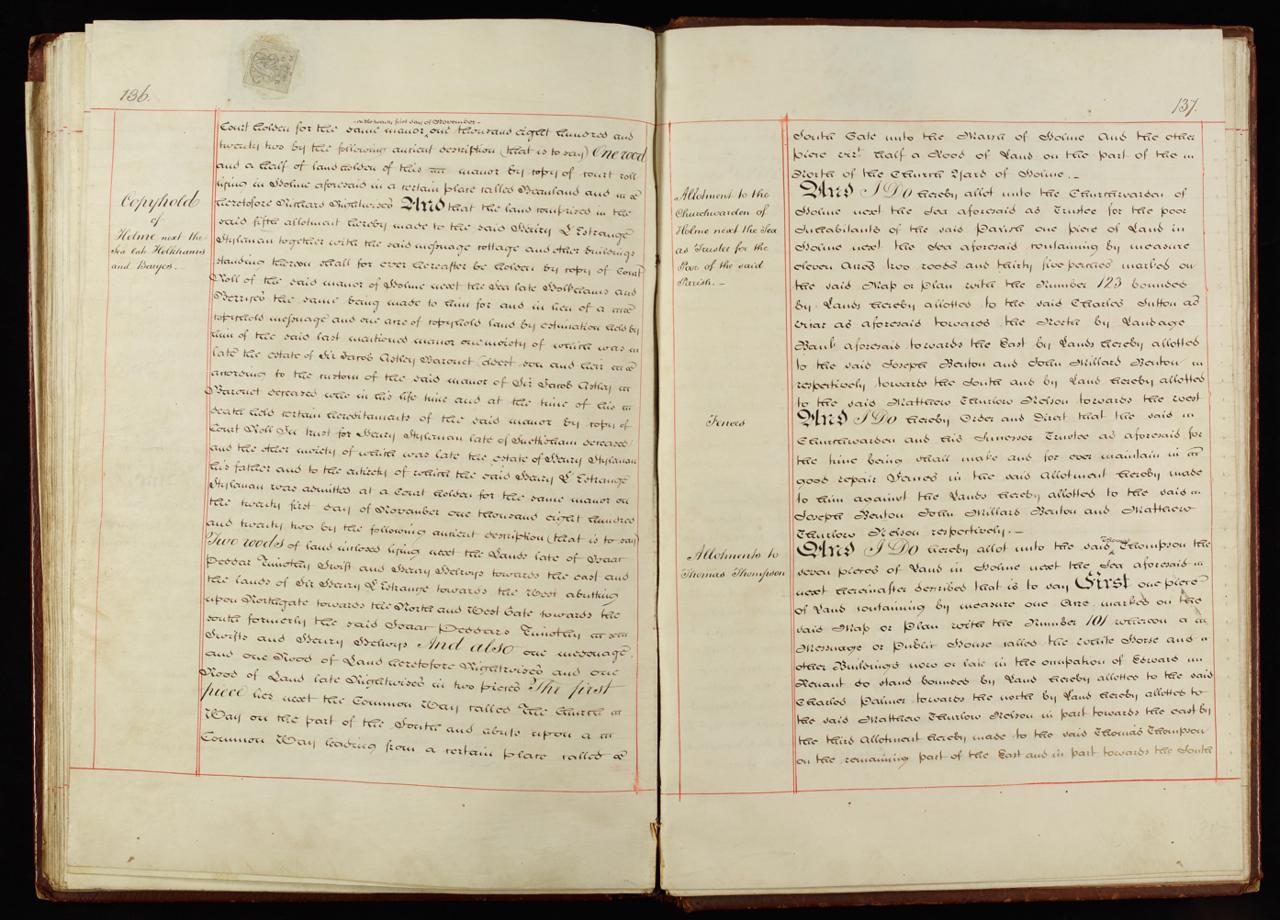 136.
Copyhold
of
Holme next the
Sea late Holkhams
and Berrys. –
on the twenty first day of November
Court holden for the same manor one thousand eight hundred and
twenty two by the following ancient description (that is to say) One rood
and a half of land holden of this manor by copy of court roll
lying in Holme aforesaid in a certain place called Beanland and
heretofore Richard Rightwises And that the land comprised in the
said fifth allotment hereby made to the said Henry L'Estrange
Styleman together with the said messuage cottage and other buildings
standing thereon shall for ever hereafter be holden by copy of Court
Roll of the said manor of Holme next the Sea late Holkhams and
Berrys the same being made to him for and in lieu of a
copyhold messuage and one acre of copyhold land by estimation held by
him of the said last mentioned manor one moiety of which was
late the estate of Sir Jacob Astley Baronet eldest son and heir
according to the custom of the said manor of Sir Jacob Astley
Baronet deceased who in his life time and at the time of his
death held certain hereditaments of the said manor by copy of
Court Roll In trust for Henry Styleman late of Snettisham deceased
and the other moiety of which was late the estate of Henry Styleman
his father and to the entirety of which the said Henry L'Estrange
Styleman was admitted at a Court holden for the same manor on
the twenty first day of November one thousand eight hundred
and twenty two by the following ancient description (that is to say)
Two roods of land inclosed lying next the Lands late of Isaac
Peddar Timothy Swift and Henry Helwys towards the east and
the lands of Sir Henry L'Estrange towards the West abutting
upon Northgate towards the North and West Gate towards the
south formerly the said Isaac Peddars Timothy
Swifts and Henry Helwys And also one messuage
and one Rood of Land heretofore Rightwises and one
Rood of Land late Rightwises in two pieces The first
piece lies next the Common Way called The Church
Way on the part of the South and abuts upon a
Common Way leading from a certain place called
137.
Allotment to the
Churchwarden of
Holme next the Sea
as Trustee for the
Poor of the said
Parish. –
Fences
Allotments to
Thomas Thompson
South Gate unto the Marsh of Holme And the other
piece vizt half a Rood of Land on the part of the
North of the Church Yard of Holme. –
And I Do hereby allot unto the Churchwarden of
Holme next the Sea aforesaid as Trustee for the poor
Inhabitants of the said Parish one piece of Land in
Holme next the Sea aforesaid containing by measure
eleven Acres two roods and thirty five perches marked on
the said Map or Plan with the Number 123 bounded
by Lands hereby allotted to the said Charles Sutton as
vicar as aforesaid towards the North by Landage
Bank aforesaid towards the East by Lands hereby allotted
to the said Joseph Benton and John Millard Benton
respectively towards the South and by Land hereby allotted
to the said Matthew Thurlow Nelson towards the west
And I Do hereby Order and Direct that the said
Churchwarden and his Successor Trustee as aforesaid for
the time being shall make and for ever maintain in
good repair Fences in the said Allotment hereby made
to him against the Lands hereby allotted to the said
Joseph Benton John Millard Benton and Matthew
Thurlow Nelson respectively. –
And I Do hereby allot unto the said Thomas Thompson the
seven pieces of Land in Holme next the Sea aforesaid
next hereinafter described that is to say First one piece
of Land containing by measure one Acre marked on the
said Map or Plan with the Number 101 whereon a
Messuage or Public House called the White Horse and
other Buildings now or late in the occupation of Edward
Renaut do stand bounded by Land hereby allotted to the said
Charles Palmer towards the north by Land hereby allotted to
the said Matthew Thurlow Nelson in part towards the east by
the third Allotment hereby made to the said Thomas Thompson
on the remaining part of the East and in part towards the South